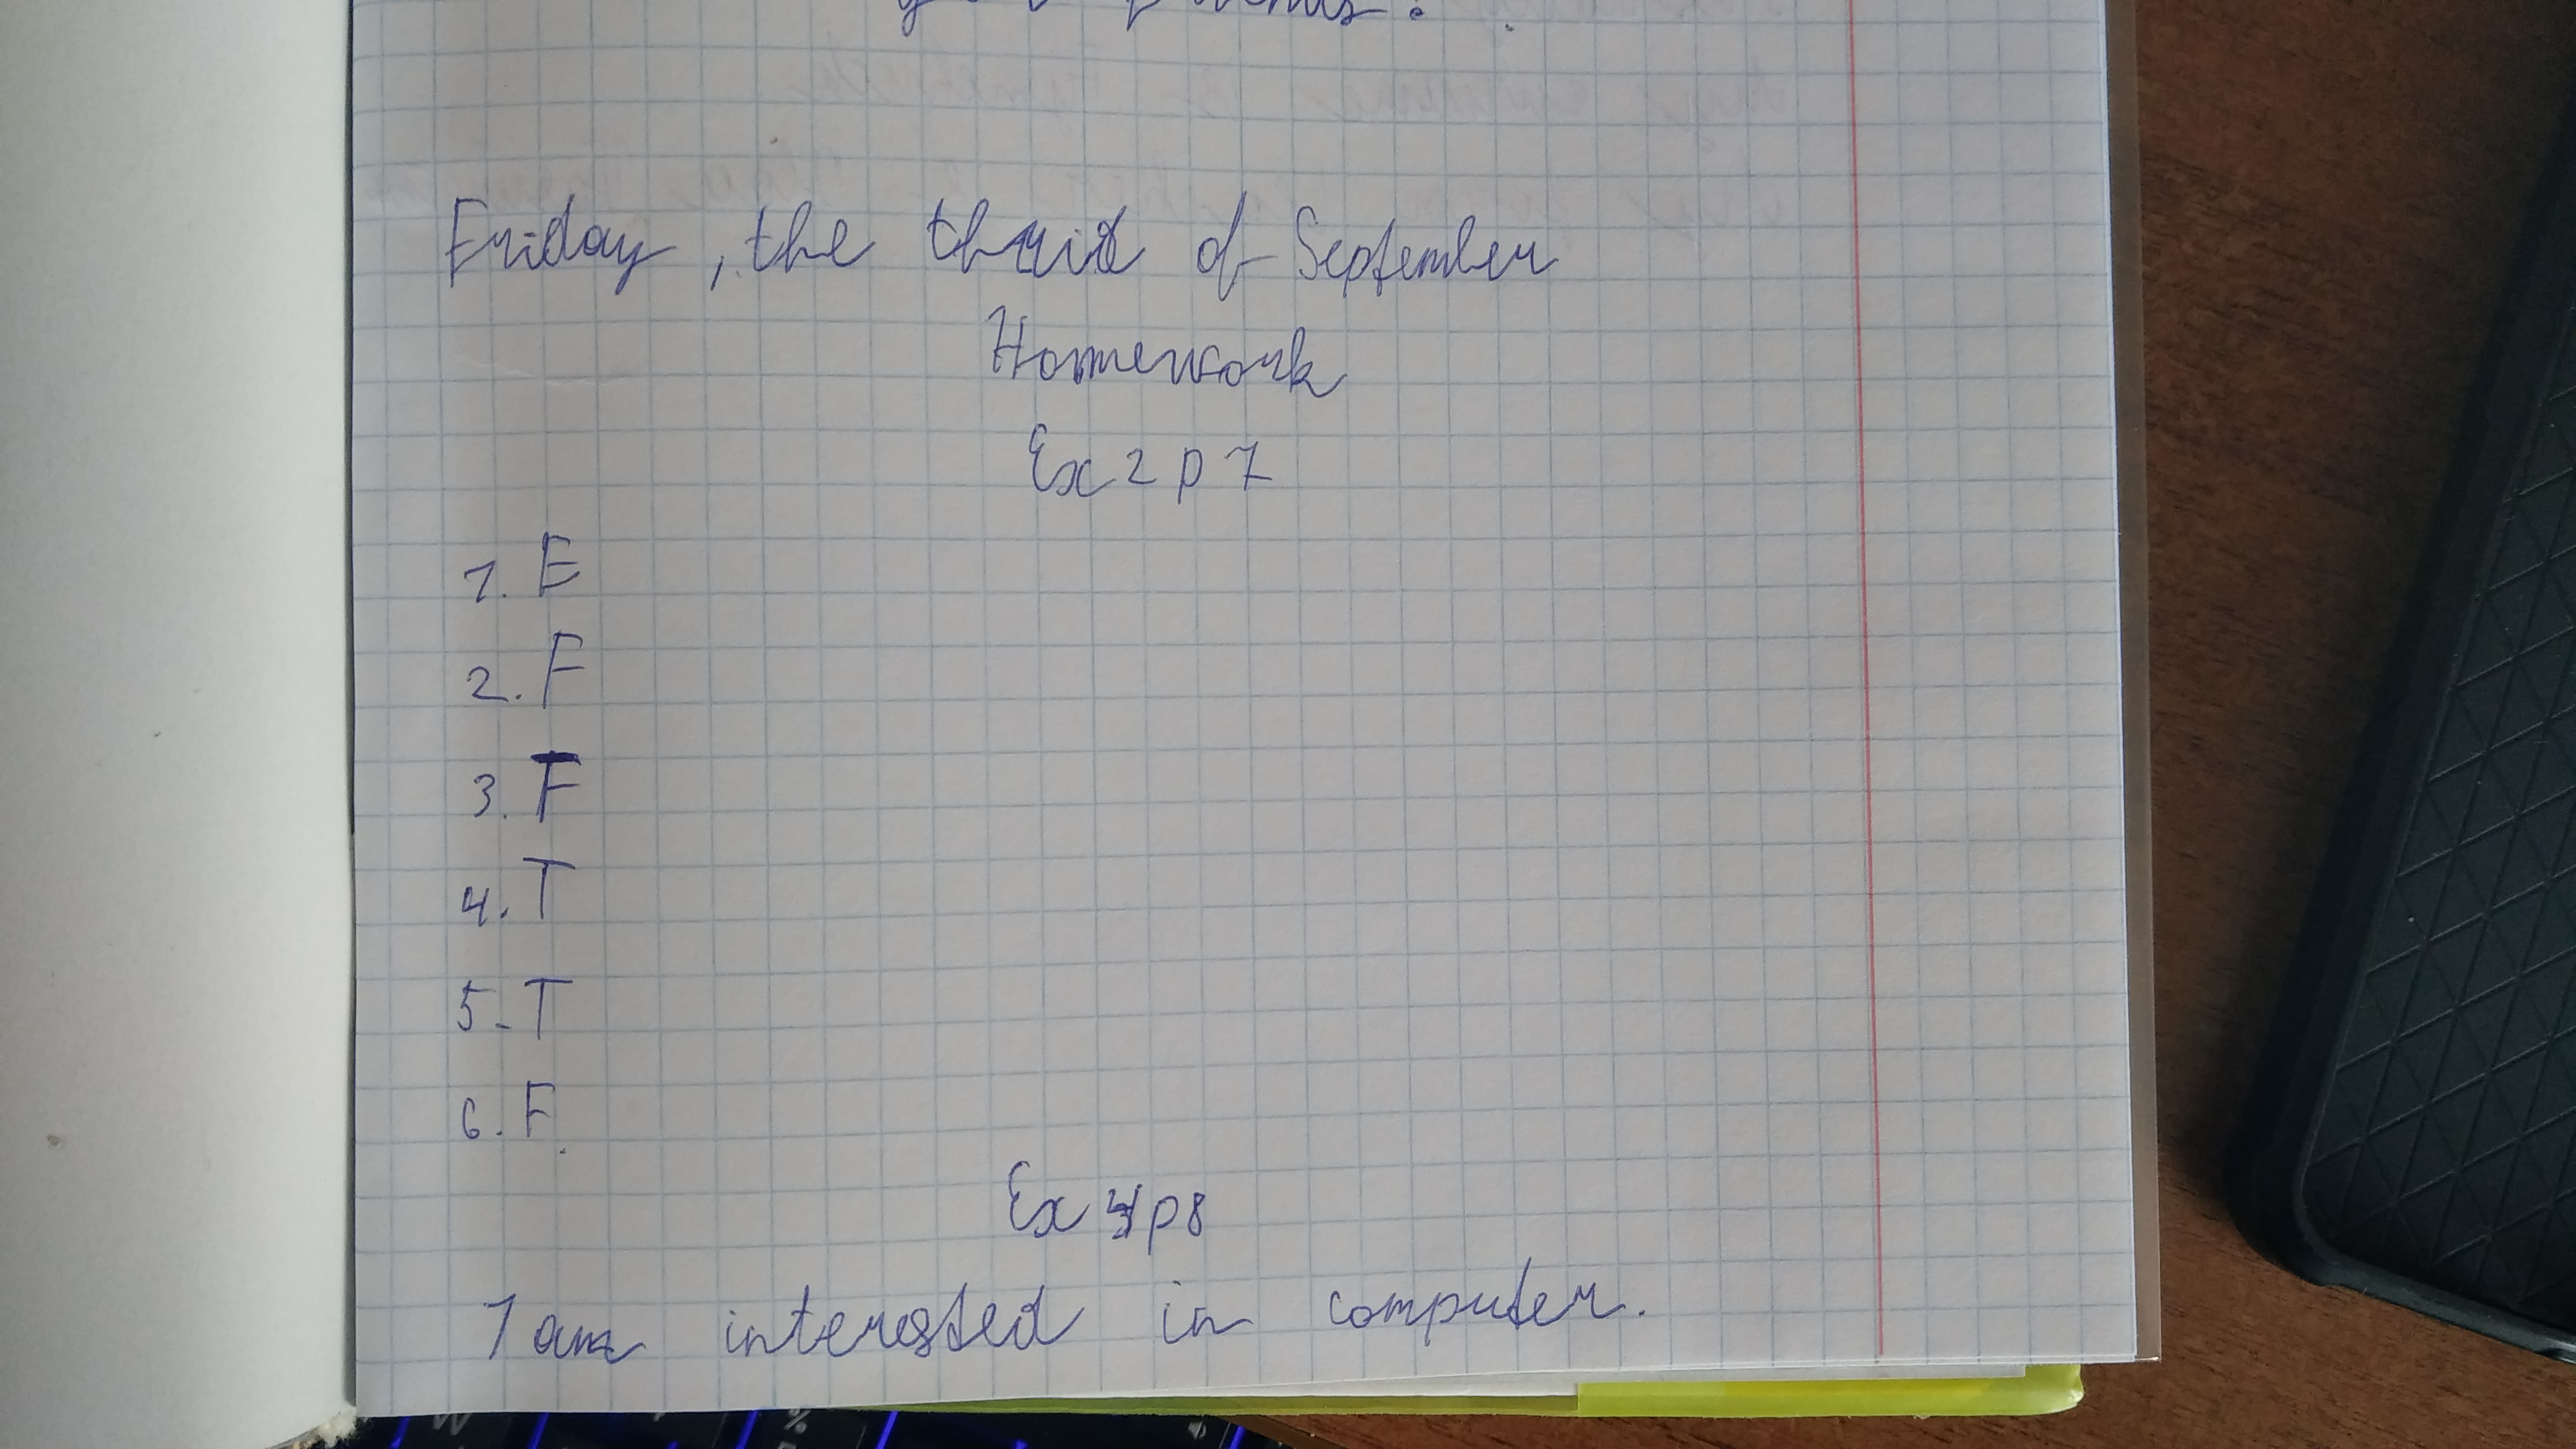 friends.
Friday, the thrid of September
Homework
Ex 2 p 7
1. E
2. F
3. F
4. T
5. T
6. F.
Ex 4 p 8
I am interested in computer.